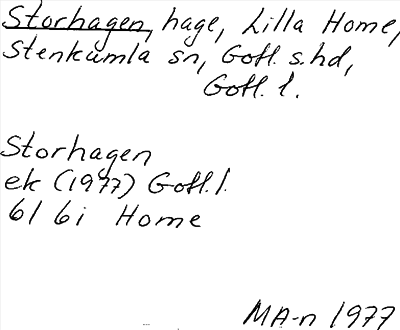 Storhagen, hage, Lilla Home,
Stenkumla sn, Gotl. s. hd,
Gotl. l.
Storhagen
ek (1977) Gotl. l.
6I 6i Home
MA-n 1977